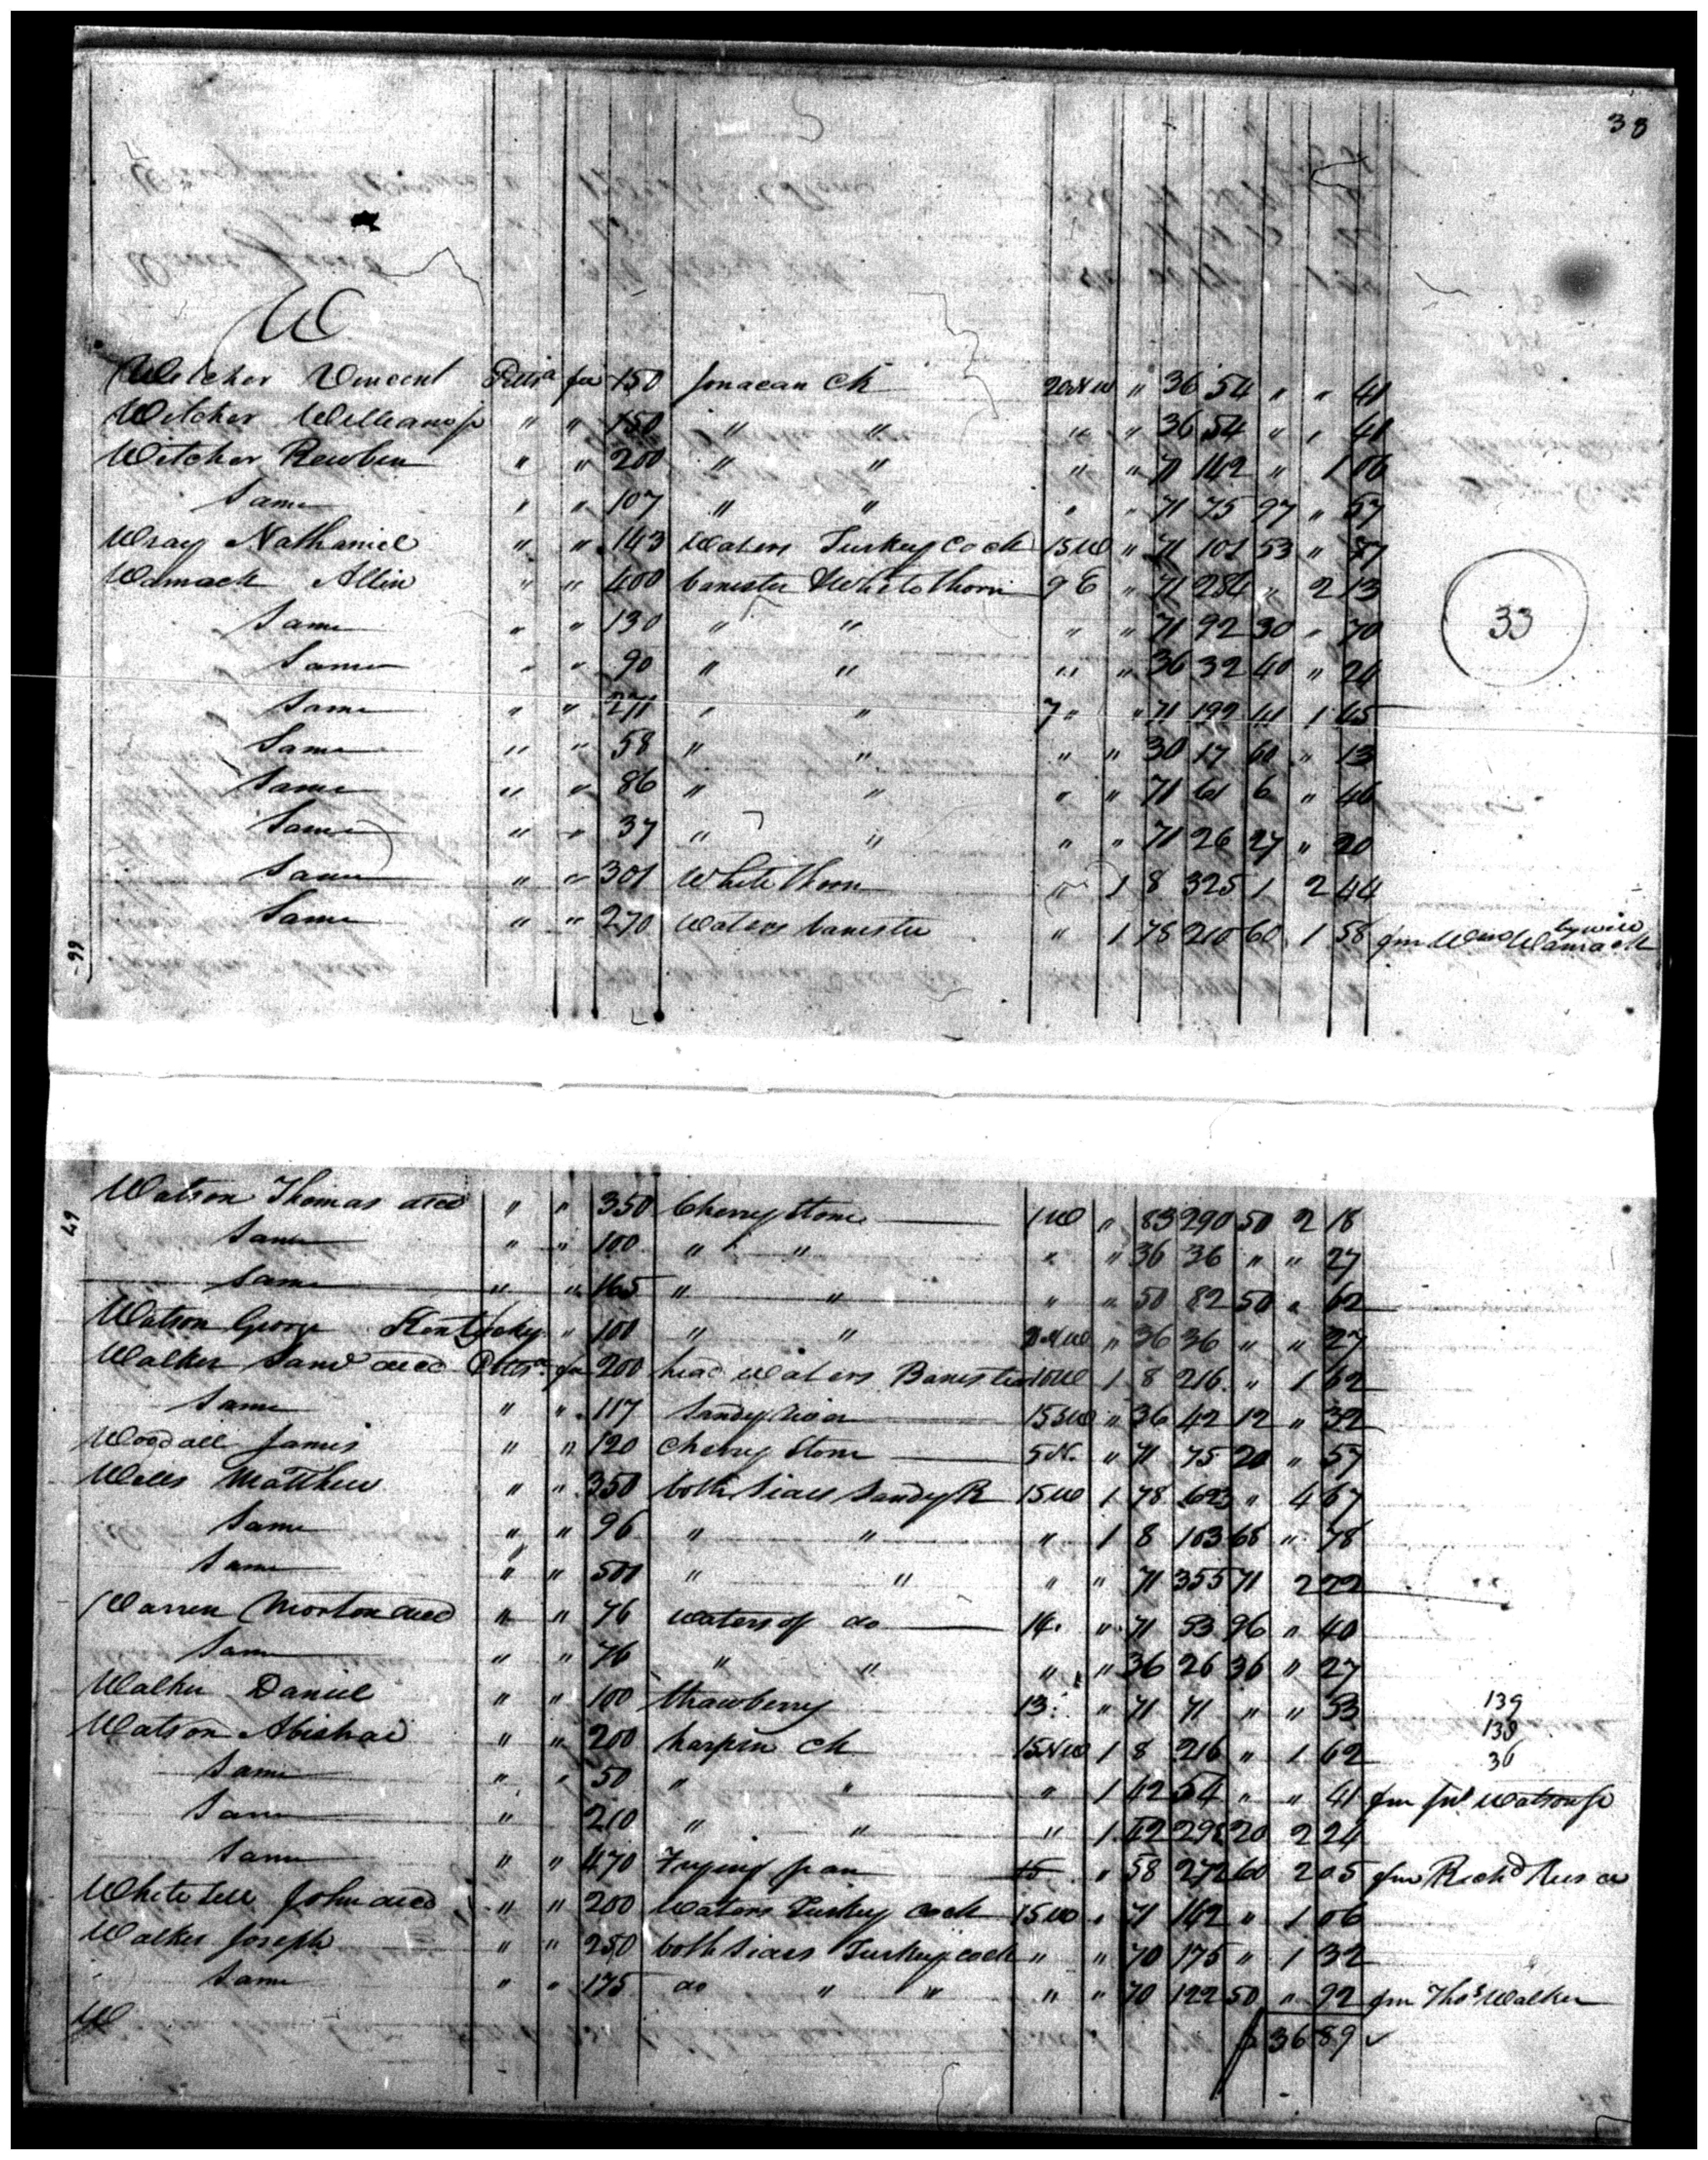 38
W
Witcher Vincent Pitts<sup>a</sup> fee 150 Jonacan Ck 20 N W " 36 54 " " 41
Witcher William jr " " 150 " " " " 36 54 " " 41
Witcher Reuben " " 200 " " " " 71 142 " 1 06
Same " " 107 " " " " 71 75 97 " 57
Wray Nathaniel " " 143 Waters Turkey Cock 15 W " 71 101 53 " 77
Wamack Allin " " 400 banister & White thorn 9 E " 71 284 " 2 13
33
Same " " 130 " " " " 71 92 30 " 70
Same " " 90 " " " " 36 32 40 " 24
Same " " 271 " " 7 " " 71 192 41 1 45
Same " " 58 " " " " 30 17 60 " 13
Same " " 86 " " " " 71 61 6 " 46
Same " " 37 " " " " 71 26 27 " 20
Same " " 301 White thorn " 1 8 325 1 2 44
Same " " 270 Waters banister " 1 78 210 60 1 58 fm Wm Wamack by will
66
67
Watson Thomas decd " " 350 Cherry Stone 1 W " 83 290 50 2 18
Same " " 100 " " " " 36 36 " " 27
Same " " 165 " " " " 50 82 50 " 62
Watson George Kentucky " 100 " " 2 N W " 36 36 " " 27
Walker Saml decd Pitts<sup>a</sup> fee 200 head Waters Banister 18 W 1 8 216 " 1 62
Same " " 117 Sandy River 15 S W " 36 42 12 " 32
Woodall James " " 120 Cherry Stone 5 N. " 71 75 20 " 57
Wells Matthew " " 350 both sides Sandy R 15 W 1 78 623 " 4 67
Same " " 96 " " " 1 8 103 68 " 78
Same " " 501 " " " " 71 355 71 2 22
Warren Morton decd " " 76 waters of do 14. " 71 53 96 " 40
Same " " 76 " " " " 36 26 36 " 27
Walker Daniel " " 100 Strawberry 13. " 71 71 " " 53
139
138
36
Watson Abishai " " 200 harpin Ck 15 N W 1 8 216 " 1 62
Same " " 50 " " " 1 42 54 " " 41 fm Jno Watson jr
Same " 210 " " " 1 42 298 20 2 24
Same " " 470 Frying pan 15 " 58 272 60 2 05 fm Richd
Whitehill John decd " " 200 Waters Turkey Cock 15 W " 71 142 " 1 06
Walker Joseph " " 250 both sides Turkey cock " " 70 175 " 1 32
Same " " 175 do " " " " 70 122 50 " 92 fm Thos Walker
W 36 89